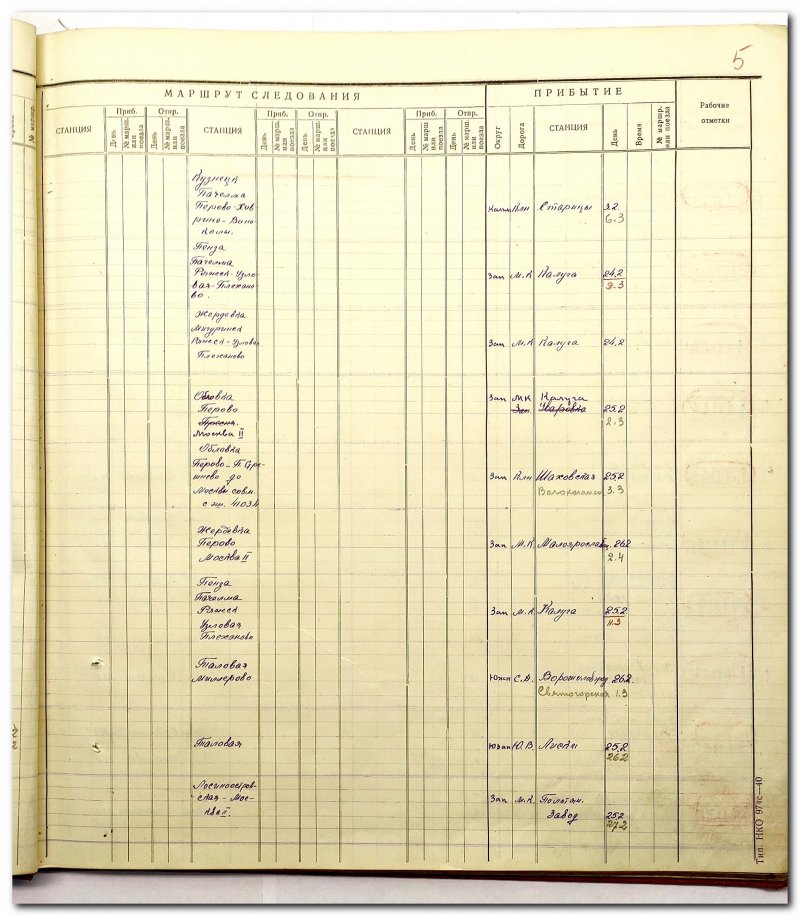 5
МАРШРУТ СЛЕДОВАНИЯ
ПРИБЫТИЕ
Рабочие
отметки
СТАНЦИЯ
Приб.
Отпр.
День
№ марш. или поезда
День
№ марш. или поезда
СТАНЦИЯ
Приб.
Отпр.
День
№ марш. или поезда
День
№ марш. или поезда
СТАНЦИЯ
Приб.
Отпр.
День
№ марш. или поезда
День
№ марш. или поезда
Округ
Дорога
СТАНЦИЯ
День
Время
№ маршр. или поезда
№ маршр.
Кузнецк
Пачелма
Перово-Хов
Калин Клн Старицы
6.3
рино-
Пенза
Пачелма
Ряжск-Узло
Зап М.К Калуга 24.2
вая-Плехано
9.3
во.
Жердевка
Мичуринск
Ряжск-Узловая
Зап М.К Калуга 24.2
Плеханово
Обловка
Зап МК Калуга
Перово
Зап. 25.2
Пресня
2.3
Москва II
Обловка
Перово-П. Стре-
шнево до
Зап Клн Шаховская 25.2
Москвы совм.
Волоколамск 3.3
с эш. 41034
Жердевка
Перово
Зап М.К. Малоярославец. 26.2
Москва II
2.4
Пенза
Пачелма
Ряжск
Зап М.К. Калуга 25.2
Узловая
11.3
Плеханово
Таловая
Миллерово
Южн С.Д. Ворошиловград 26.2.
Святогорская 1.3
Таловая
Юзап Ю.В. Лиски 25.2
26.2
Лосиноостров-
ская-Мос-
Зап М.К. Полотн.
ква II.
Завод 25.2
27.2
Тип. НКО 974с—40